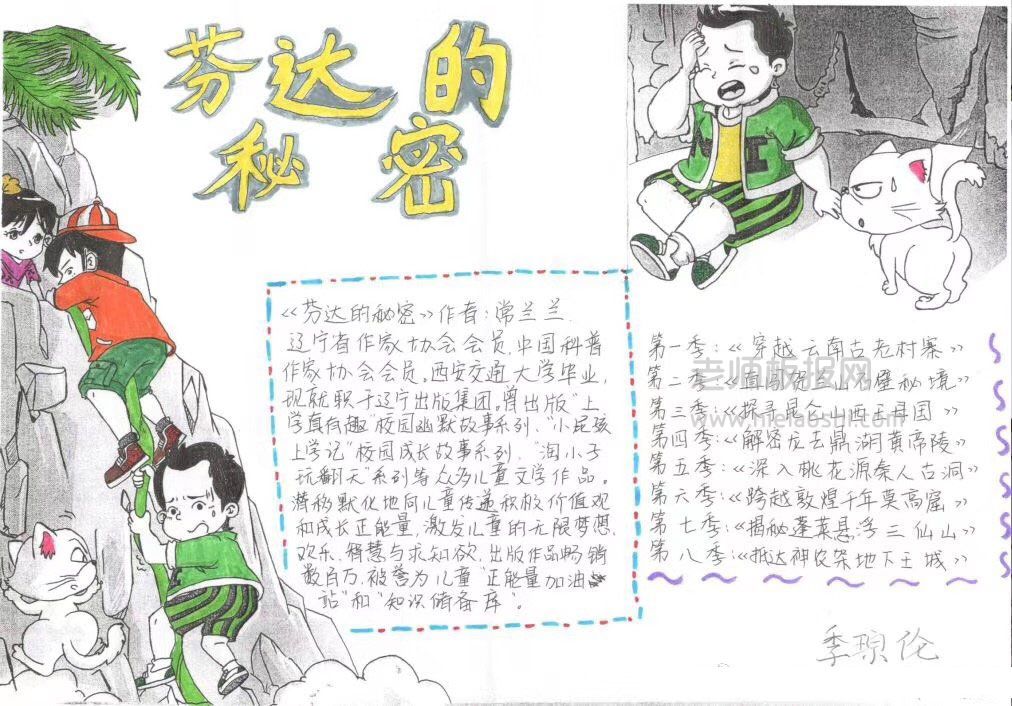 芬达的
秘密
《芬达的秘密》作者:常兰兰.
辽宁省作家协会会员.中国科普
作家协会会员。西安交通大学毕业,
现就职于辽宁出版集团。曾出版“上
学真有趣”校园幽默故事系列、“小屁孩
上学记”校园成长故事系列、“淘小子
玩翻天”系列等众多儿童文学作品。
潜移默化地向儿童传递积极价值观
和成长正能量,激发儿童的无限梦想、
欢乐、智慧与求知欲.出版作品畅销
数百万.被誉为儿童“正能量加油
站”和“知识储备库”。
第一季:《穿越云南古老村寨》
第二季:《 山 壁秘境》
第三季:《探寻昆仑山西王母国》
第四季:《解密 鼎湖黄帝陵》
第五季:《深入桃花源秦人古洞》
第六季:《跨越敦煌千年莫高窟》
第七季:《揭秘蓬莱悬浮三仙山》
第八季:《抵达神农架地下王城》
老师板报网
www.melaoshi.com
季琼伦